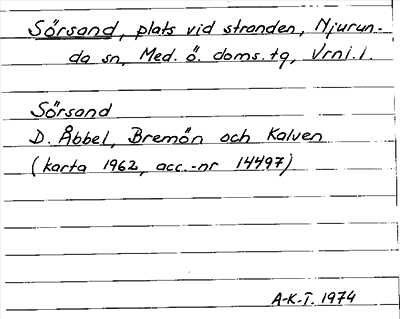 Sörsand, plats vid stranden, Njurun-
da sn, Med. ö. doms.tg, Vrnl.l.
Sörsand
D. Åbbel, Bremön och Kalven
(karta 1962, acc.-nr 14497)
A-K.T. 1974